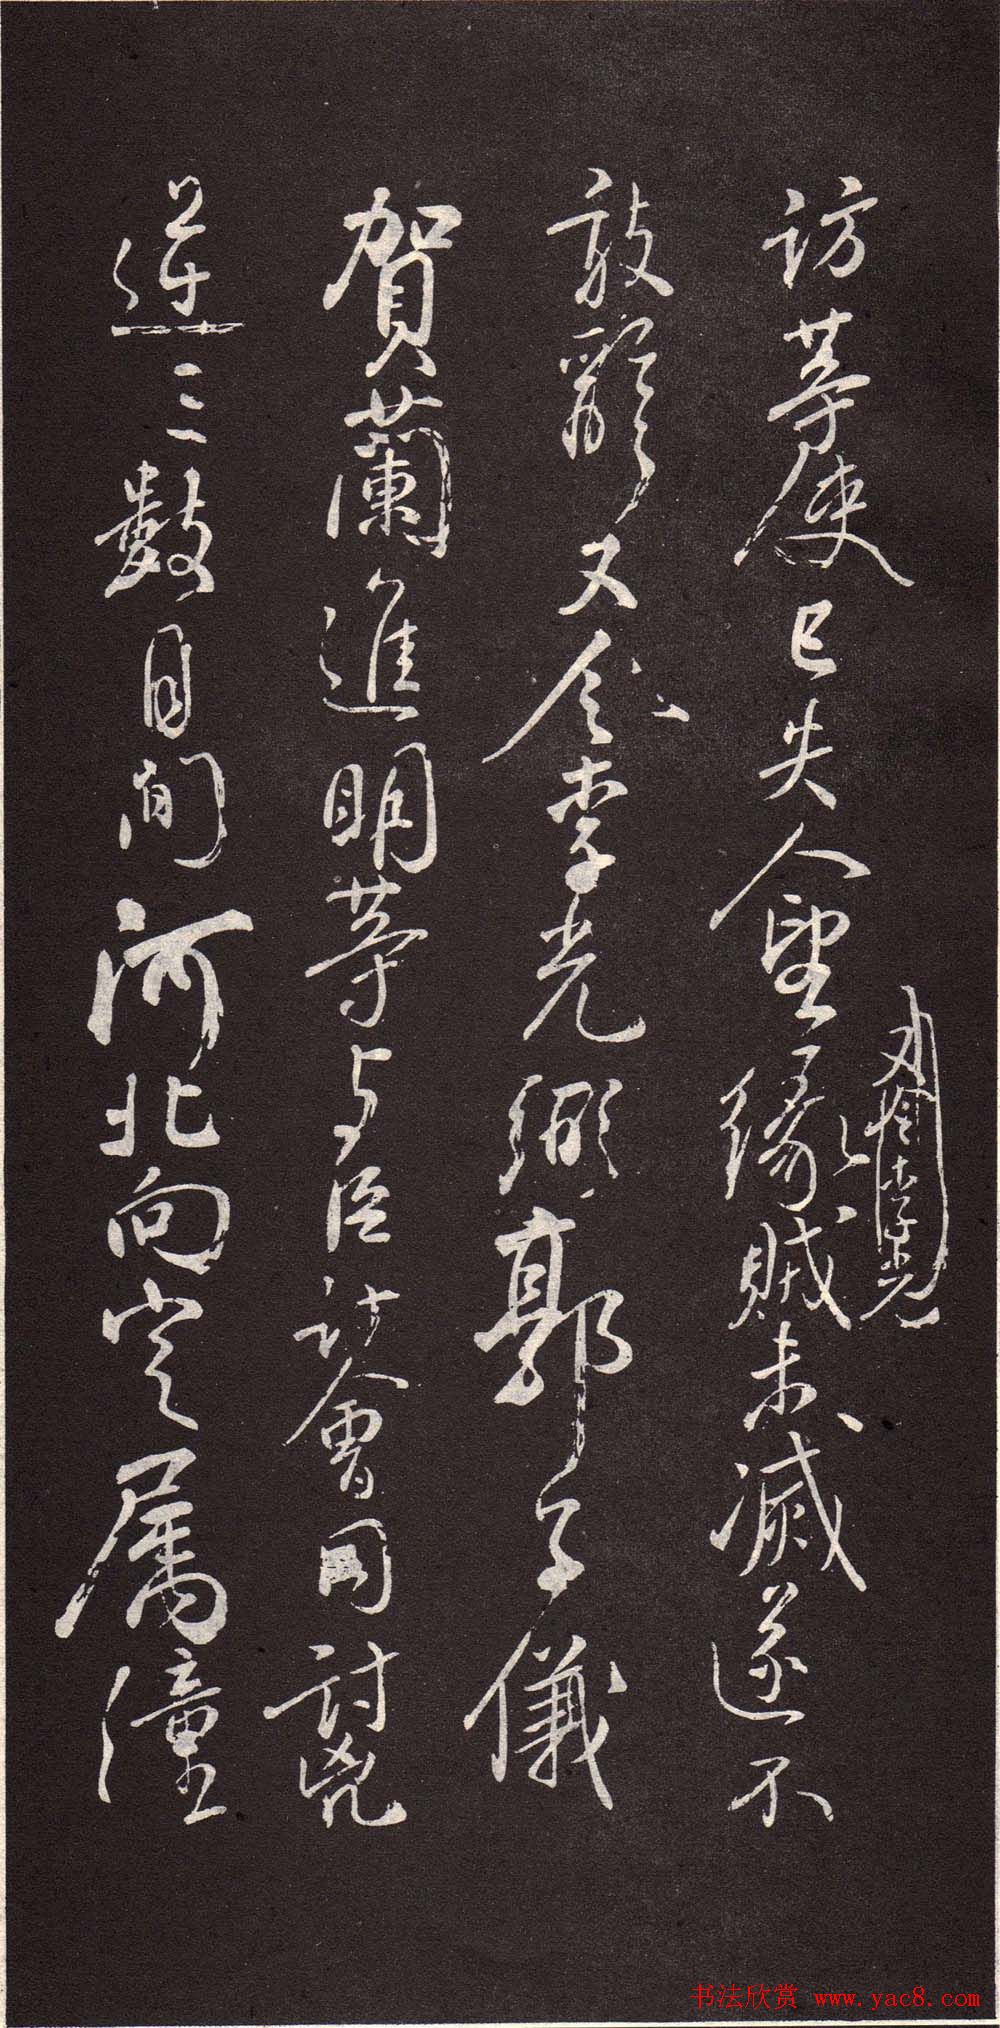 訪等使已失人望緣賊未滅遂不
李光
敢辭又令李光弼郭子儀
賀蘭進明等与臣計會同討兇
逆三數月間河北向定属潼
书法欣赏 www.yac8.com